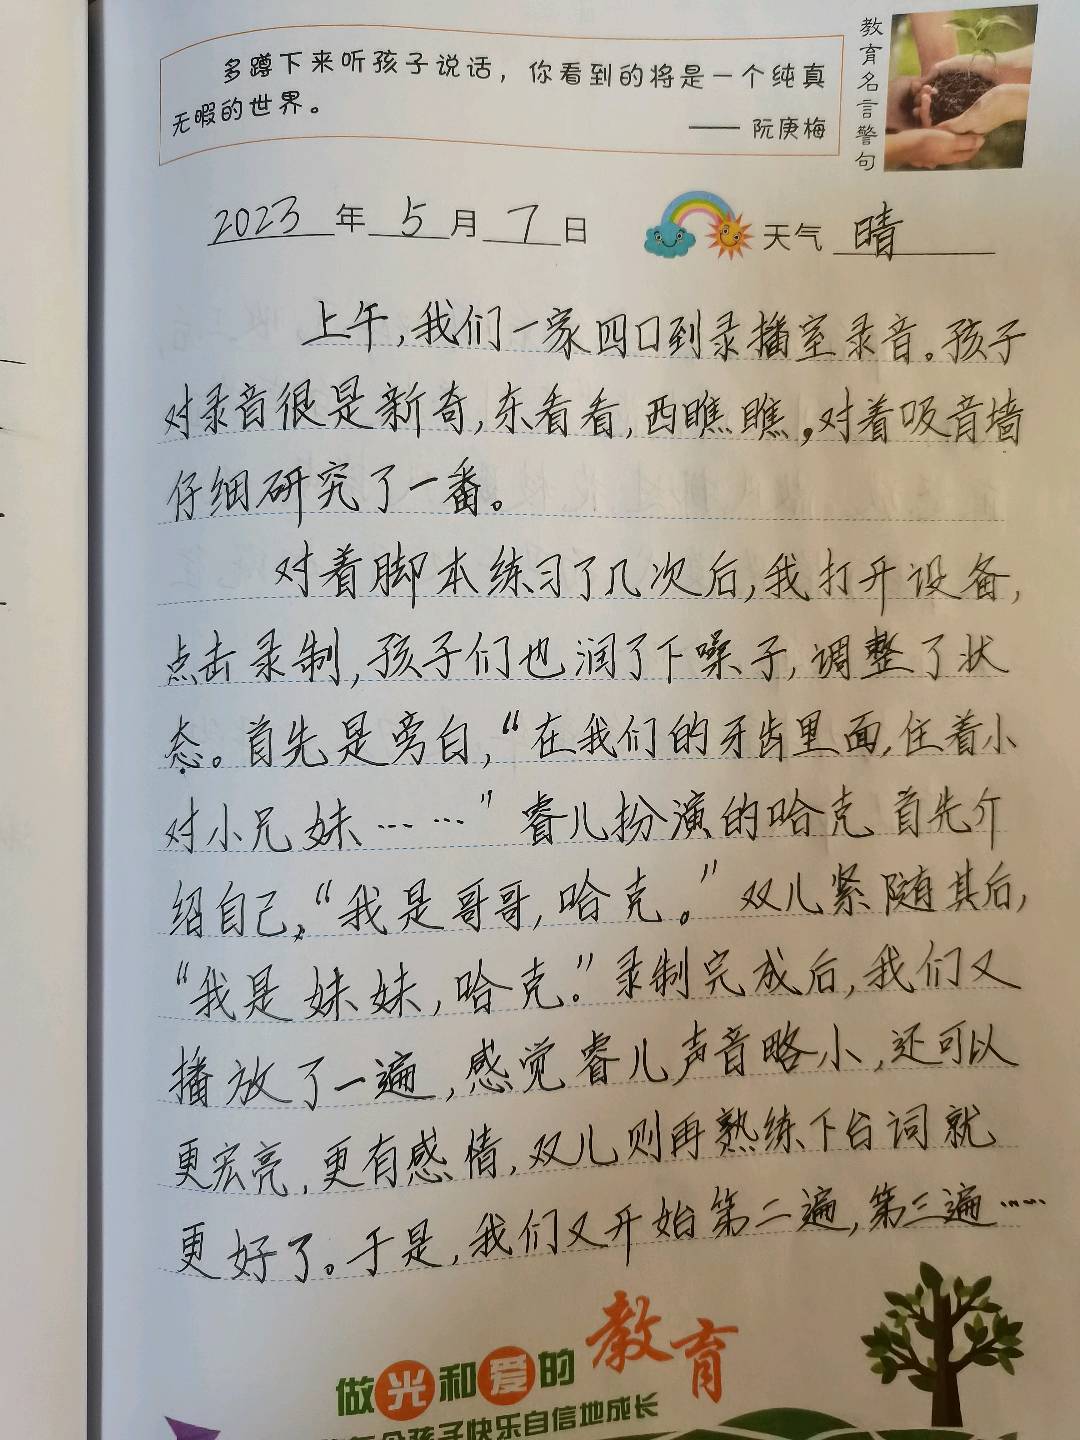 多蹲下来听孩子说话，你看到的将是一个纯真
无暇的世界。
—— 阮庚梅
教育名言警句
2023年5月7日 天气 晴
上午,我们一家四口到录播室录音。孩子
对录音很是新奇,东看看,西瞧瞧,对着吸音墙
仔细研究了一番。
对着脚本练习了几次后,我打开设备,
点击录制,孩子们也润了下嗓子,调整了状
态。首先是旁白,“在我们的牙齿里面,住着小
对小兄妹……”睿儿扮演的哈克首先介
绍自己,“我是哥哥,哈克。”双儿紧随其后,
“我是妹妹,哈克。”录制完成后,我们又
播放了一遍,感觉睿儿声音略小,还可以
更宏亮,更有感情,双儿则再熟练下台词就
更好了。于是,我们又开始第二遍,第三遍……
做光和爱的教育
个孩子快乐自信地成长